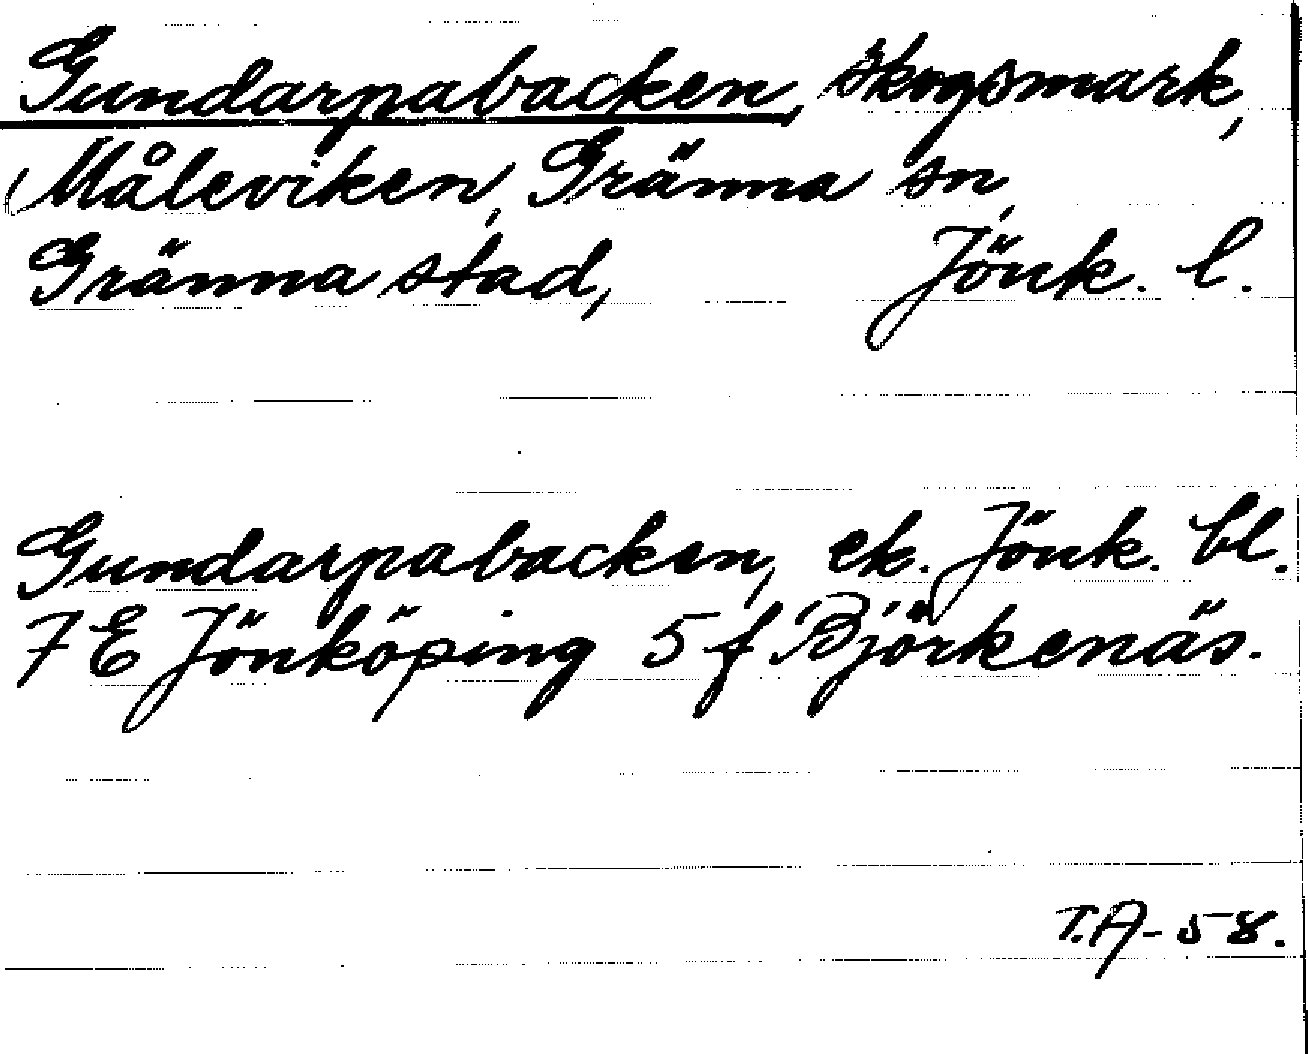 Gundarpabacken, skogsmark,
Måleviken, Gränna sn,
Gränna stad, Jönk. l.
Gundarpabacken, ek. Jönk. bl.
7 E Jönköping 5 f Björkenäs.
T.A-58.